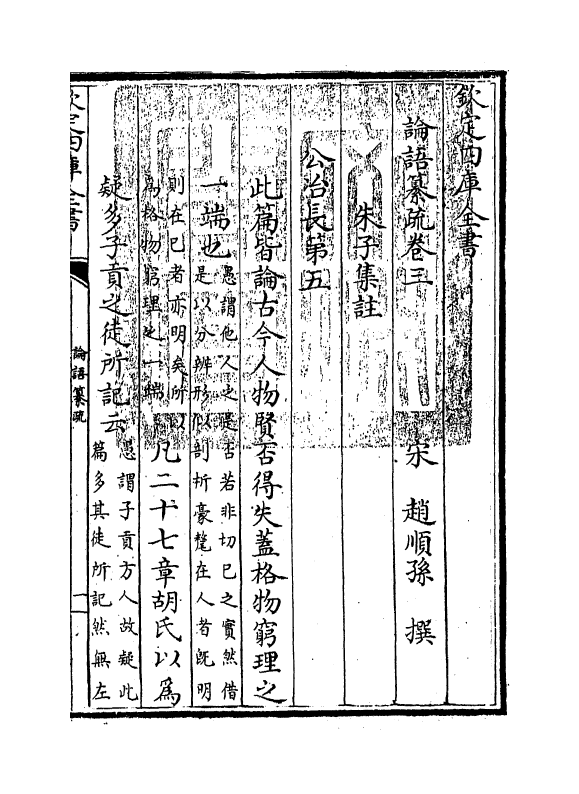 欽定四庫全書
論語纂疏卷三　宋　趙順孫　撰
朱子集註
公冶長第五
此篇皆論古今人物賢否得失蓋格物窮理之
一端也
愚謂他人之是否若非切已之實然借
是以分辨形似剖析豪氂在人者既明
則在已者亦明矣所以
為格物窮理之一端
凡二十七章胡氏以為
疑多子貢之徒所記云
愚謂子貢方人故疑此
篇多其徒所記然無左
欽定四庫全書
論語纂疏
一